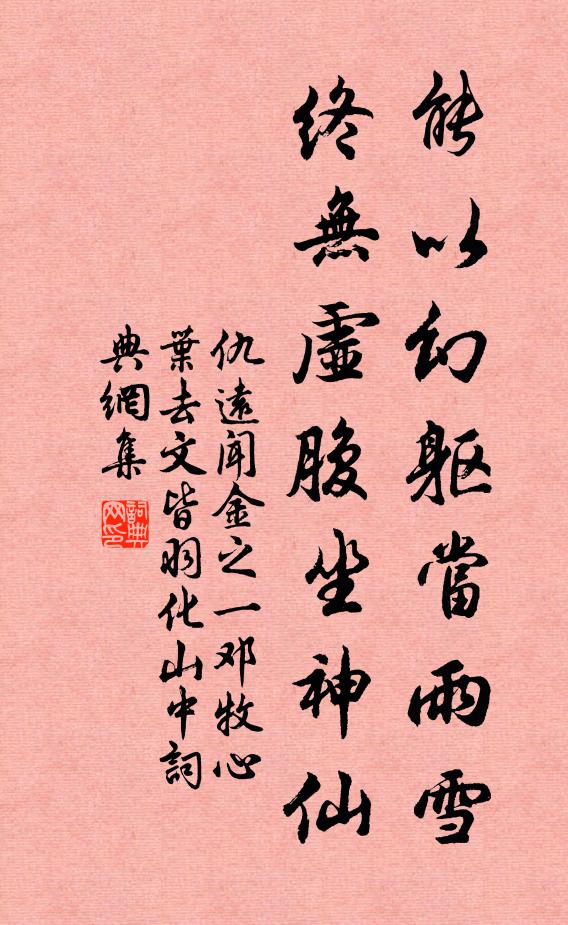 能以幻軀當雨雪
終無虛腹坐神仙
仇遠聞金之一邓牧心
葉去文皆羽化山中詞
典網集
詞典網印